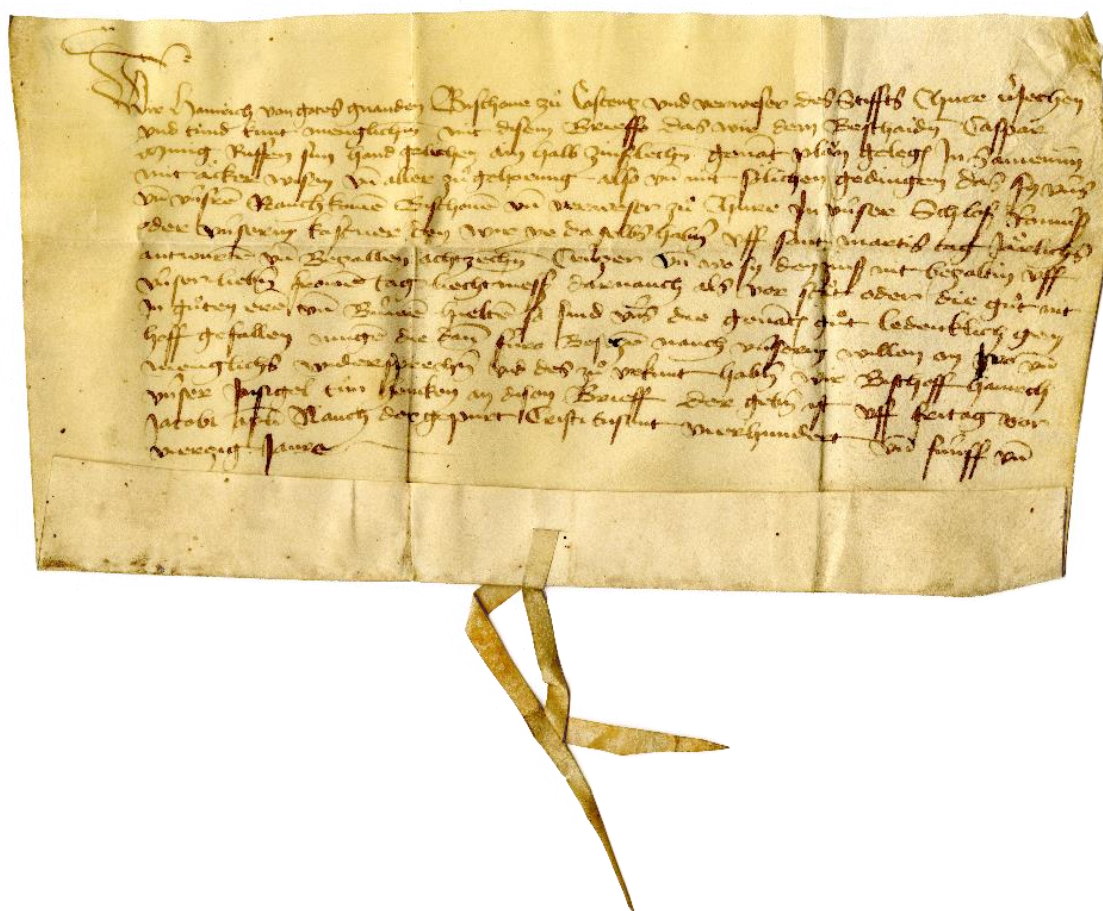 Wir Hainrich von gottes gnanden Bischoue zů Costentz vnd verweser des Stiffts Chure v̊iechen
vnd tůnd kunt menglichem mit disem Brieffe das wir dem Beschaidn̄ Caspar
Ruffen sim hand gelichen ain halb zinslechn̄ genāt plån gelegē In
mit åcker wisen vn̄ aller zů gehorung also vn̄ mit sölichen gedingen das sy vn̄s
vn̄ vn̄sren Nauchkomē Bischouē vn̄ verweser zů Chure In vn̄ser Schloß Ramüß
oder vn̄serm kastner den wir ye da selbs habn̄ vff sant martis tag Järlichs
antwurtē vn̄ Bezallen achtzechn̄ Crützer vn̄ wo sy den zinß nit bezaltn̄ vff
vn̄ser liebn̄ frowē tag liechtmeß darnauch als vor stat oder die gůt nit
In gůten ere vn̄ Buwē hieltē so sind vn̄s die genātē gůt ledenklich
hoff gefallen mugē die dan̄ füro Besetzē nauch vn̄serm willen on Jro vn̄
menglichs widersprechn̄ vnd des zů vrkunt habn̄ wir Bischoff Hainrich
vn̄ser Insigel tůn henken an disen Brieff der gebn̄ ist vff fritag vor
Jacobi apli Nauch der gepurt Cristi tusent vierhundert vn̄ fünff vn̄
vierzig Jaure